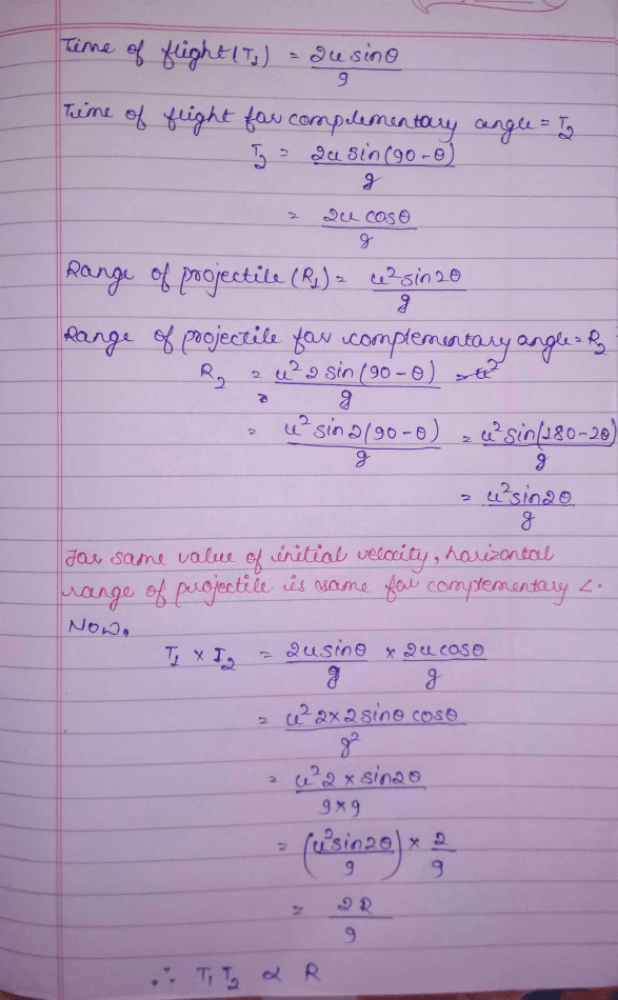 Time of flight (T₁) = 2u sinθ / g
Time of flight for complementary angle = T₂
T₂ = 2u sin(90-θ) / g
= 2u cosθ / g
Range of projectile (R₁) = u² sin2θ / g
Range of projectile for complementary angle = R₂
R₂ = u² 2 sin(90-θ) / g = u²
= u² sin2(90-θ) / g = u² sin(180-2θ) / g
= u² sin2θ / g
For same value of initial velocity, horizontal
range of projectile is same for complementary ∠.
Now,
T₁ × T₂ = 2u sinθ / g × 2u cosθ / g
= u² 2×2 sinθ cosθ / g²
= u² 2 × sin2θ / g×g
= (u² sin2θ / g) × 2 / g
= 2R / g
∴ T₁ T₂ ∝ R